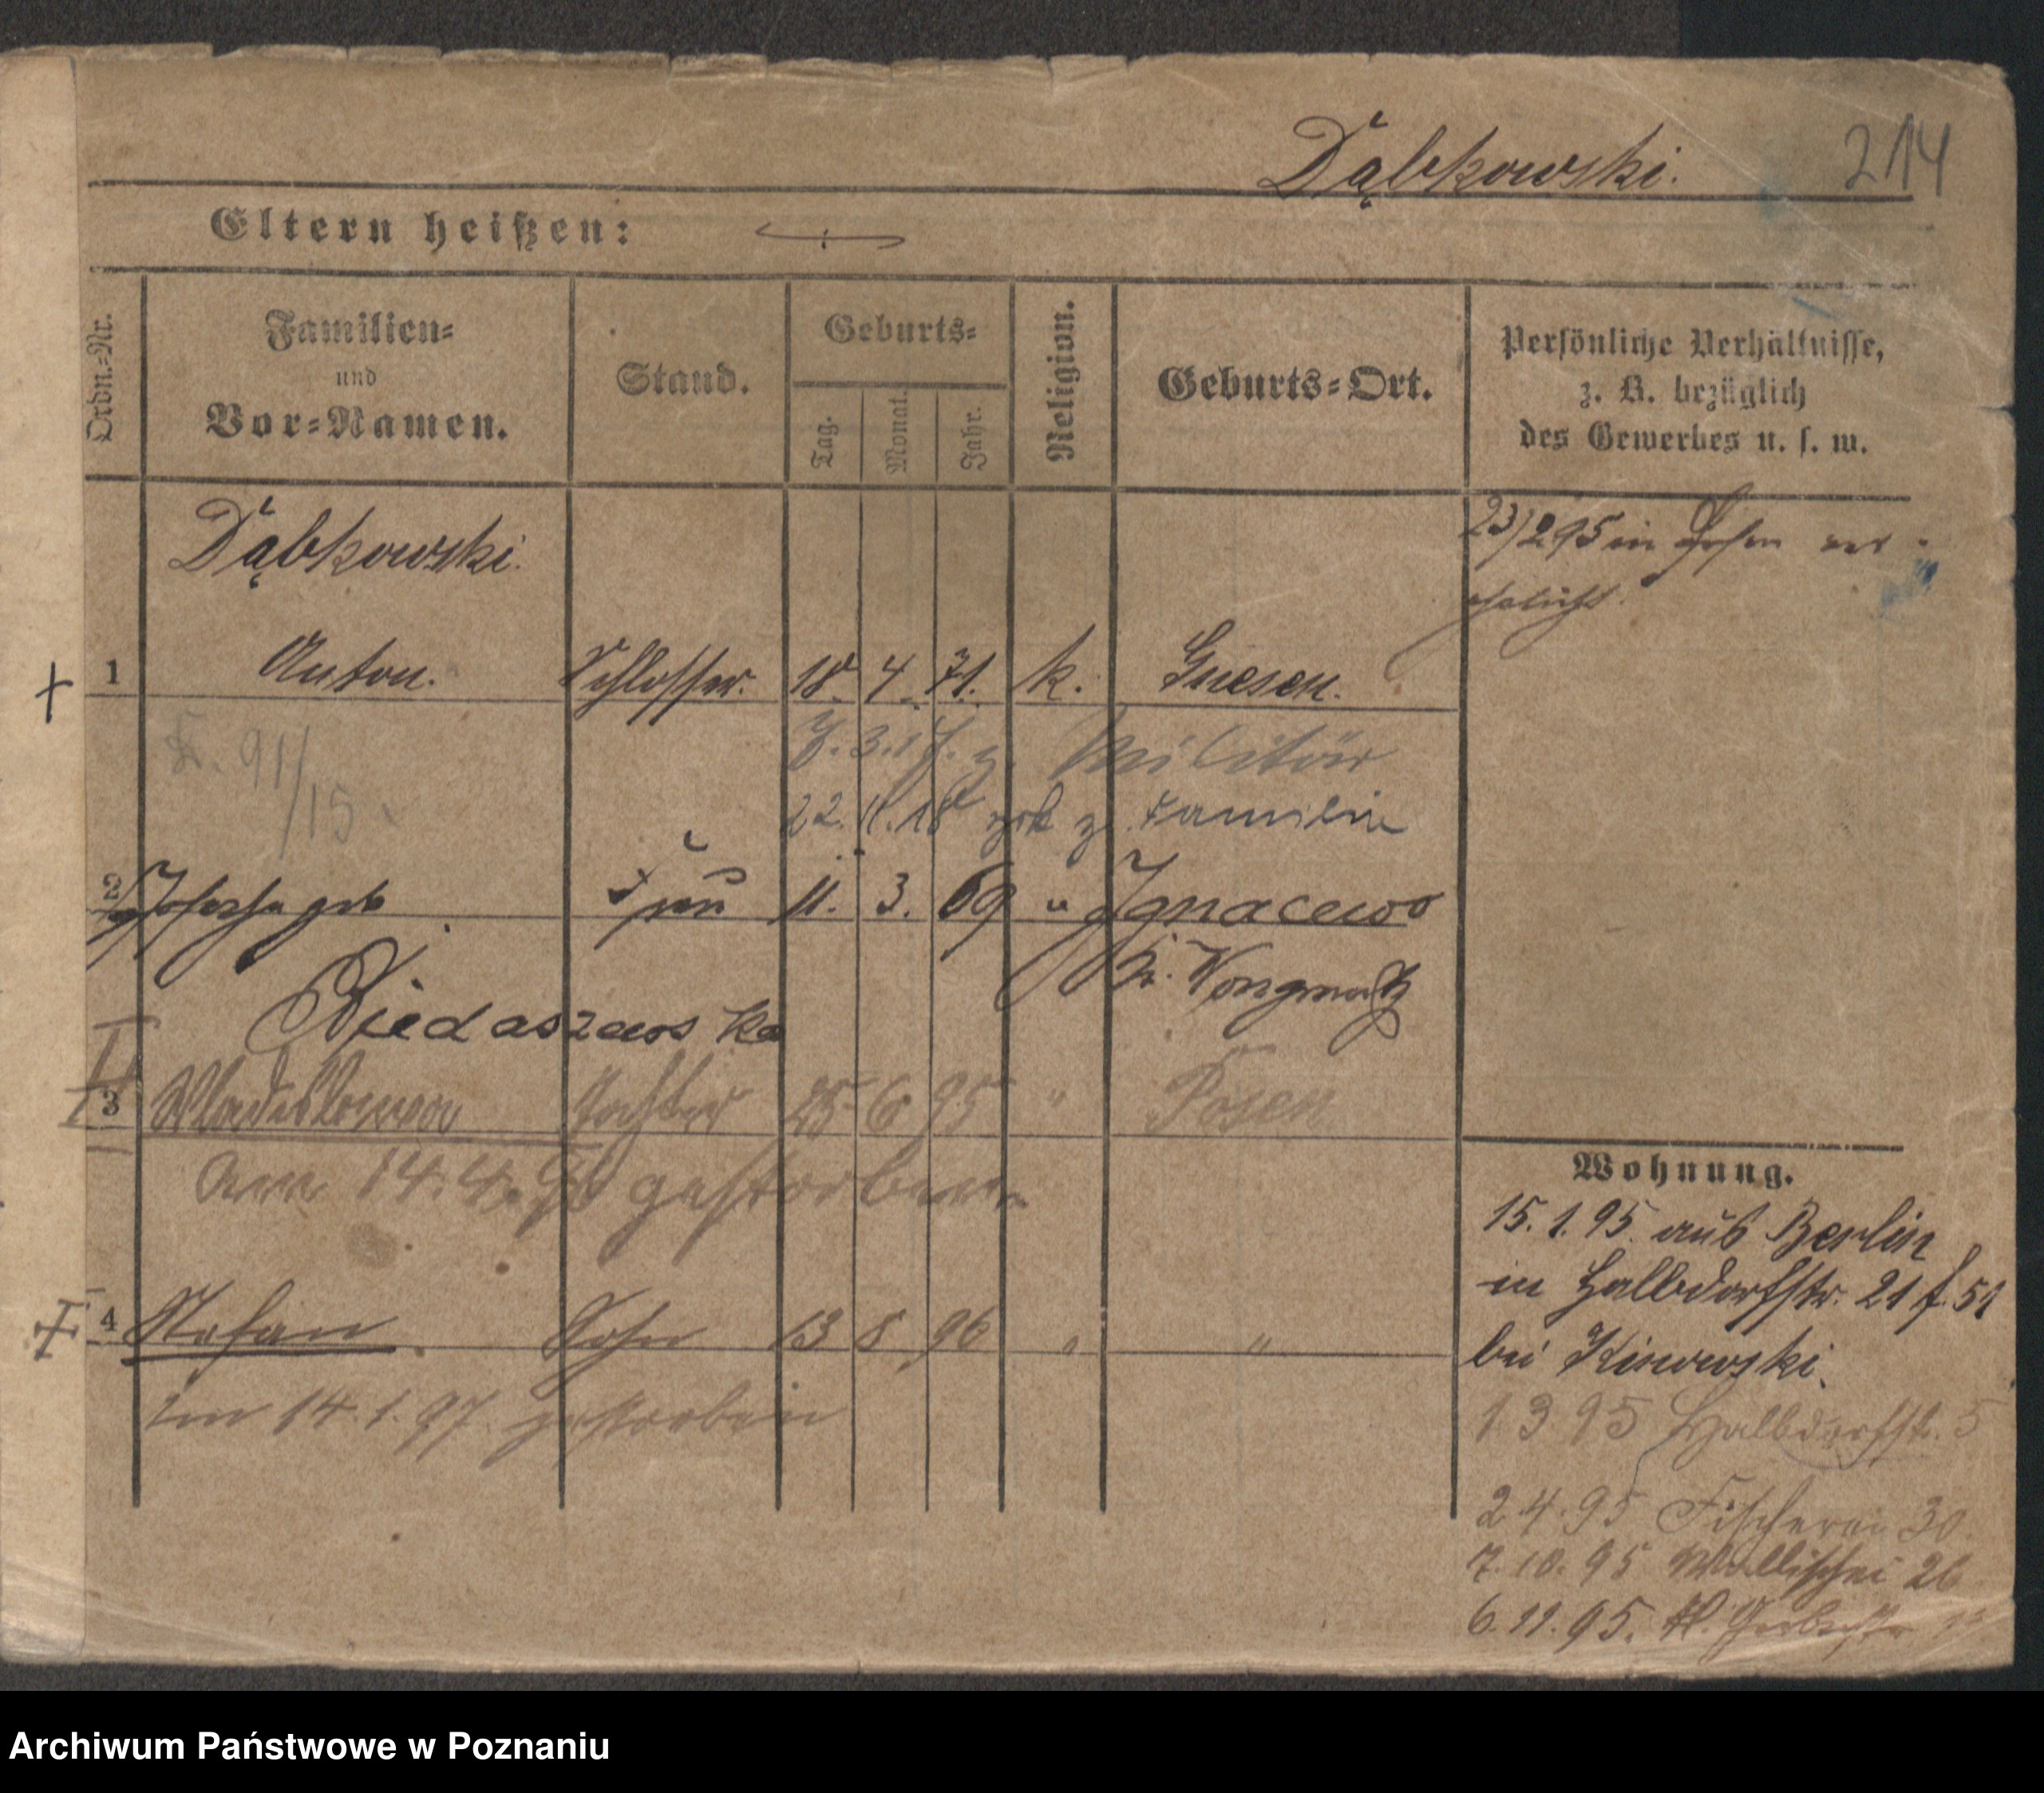 Dąbkowski. 214
Eltern heißen:
Ordn.=Nr.
Familien=
und
Vor=Namen.
Stand.
Geburts=
Tag.
Monat.
Jahr.
Religion.
Geburts=Ort.
Persönliche Verhältnisse,
z. B. bezüglich
des Gewerbes u. s. w.
Dąbkowski.
23/2 95 in Posen ver-
ehelicht.
1 Anton. Schlosser. 18. 4. 71. k. Gnesen.
91/15
7.3.17. z. Militär
22.11.18 zrk z. Familie
2 Josepha geb Frau 11. 3. 69 " Ignacewo
Niedaszewska
Kr. Wongrowitz
3 Wladislawa Tochter 25 6 95 " Posen
am 14.4.96 gestorben
4 Stefan Sohn 13 8 96 " "
am 14.1.97. gestorben
Wohnung.
15.1.95. aus Berlin
in Halbdorfstr. 21 f. 51
bei Kinowski.
1 3 95 Halbdorfstr. 5
2.4.95 Fischerei 30.
7.10.95 Wallischei 26
6.11.95. Kl. Gerberstr
Archiwum Państwowe w Poznaniu